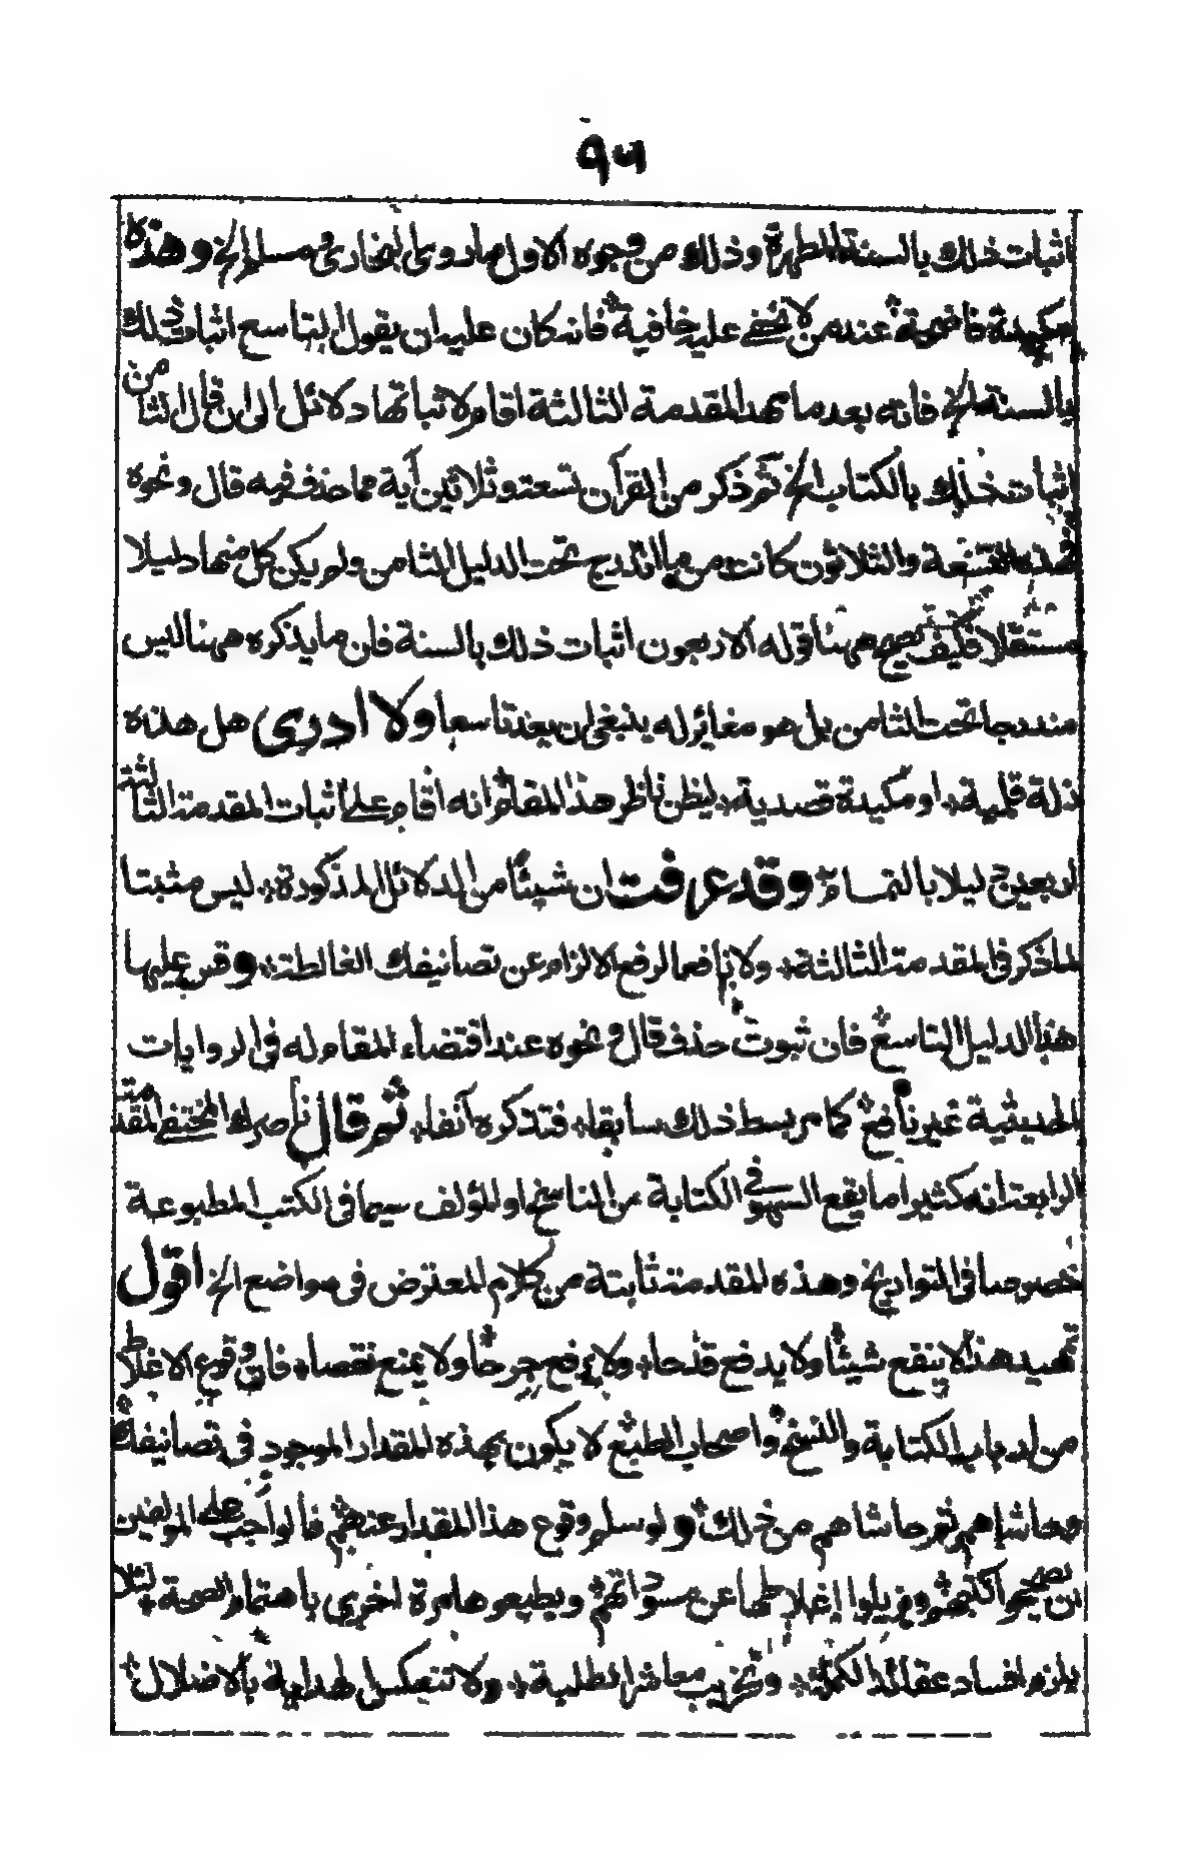 ٩٦
اثبات ذلك بالسنة المطهرة وذلك من وجوه الاول ما روى البخاري ومسلم الخ وهذه
مكيدة فاضحة عند من لا تخفى عليه خافية فانه كان عليه ان يقول التاسع اثبات ذلك
بالسنة الخ فانه بعد ما مهد المقدمة الثالثة اقام لاثباتها دلائل الى ان قال الثامن
اثبات ذلك بالكتاب الخ ثم ذكر من القرآن تسعة وثلاثين آية مما حذف فيه قال ونحوه
فهذه التسعة والثلاثون كانت مندرج تحت الدليل الثامن ولم يكن كل منها دليلا
مستقلا فكيف يصح ههنا قوله الاربعون اثبات ذلك بالسنة فان ما يذكره ههنا ليس
مندرجا تحت الثامن بل هو مغائر له ينبغي ان يعد تاسعا ولا ادرى هل هذه
زلة قلمية او مكيدة قصدية ليظن ناظر هذا المقام انه اقام على اثبات المقدمة الثالثة
اربعين دليلا بالتمام وقد عرفت ان شيئا من الدلائل المذكورة ليس مثبتا
لما ذكر في المقدمة الثالثة ولا نافعا لرفع الالزام عن تصانيفك الغالطة وقس عليها
هذا الدليل التاسع فان ثبوت حذف قال ونحوه عند اقتضاء المقام له في الروايات
الحديثية غير نافع كما مر بسط ذلك سابقا فتذكره آنفا ثم قال ناصرك المختفي المقدمة
الرابعة انه كثيرا ما يقع السهو في الكتابة من الناسخ او المؤلف سيما في الكتب المطبوعة
خصوصا في التواريخ وهذه المقدمة ثابتة من كلام المعترض في مواضع الخ اقول
تمهيد هذا لا ينفع شيئا ولا يدفع قدحا ولا يرفع جرحا ولا يمنع نقصا فان وقوع الاغلاط
من ارباب الكتابة والنسخ واصحاب الطبع لا يكون بهذه المقدار الموجود في تصانيفك
وحاشاهم ثم حاشاهم من ذلك ولو سلم وقوع هذا المقدار عنهم فالواجب على المؤلفين
ان يصححوا كتبهم ويزيلوا اغلاطها عن مسوداتهم ويطبعوها مرة اخرى باهتمام الصحة لئلا
يلزم افساد عقائد الكملة وتخريب معاشر الطلبة ولا تنعكس الهداية بالاضلال